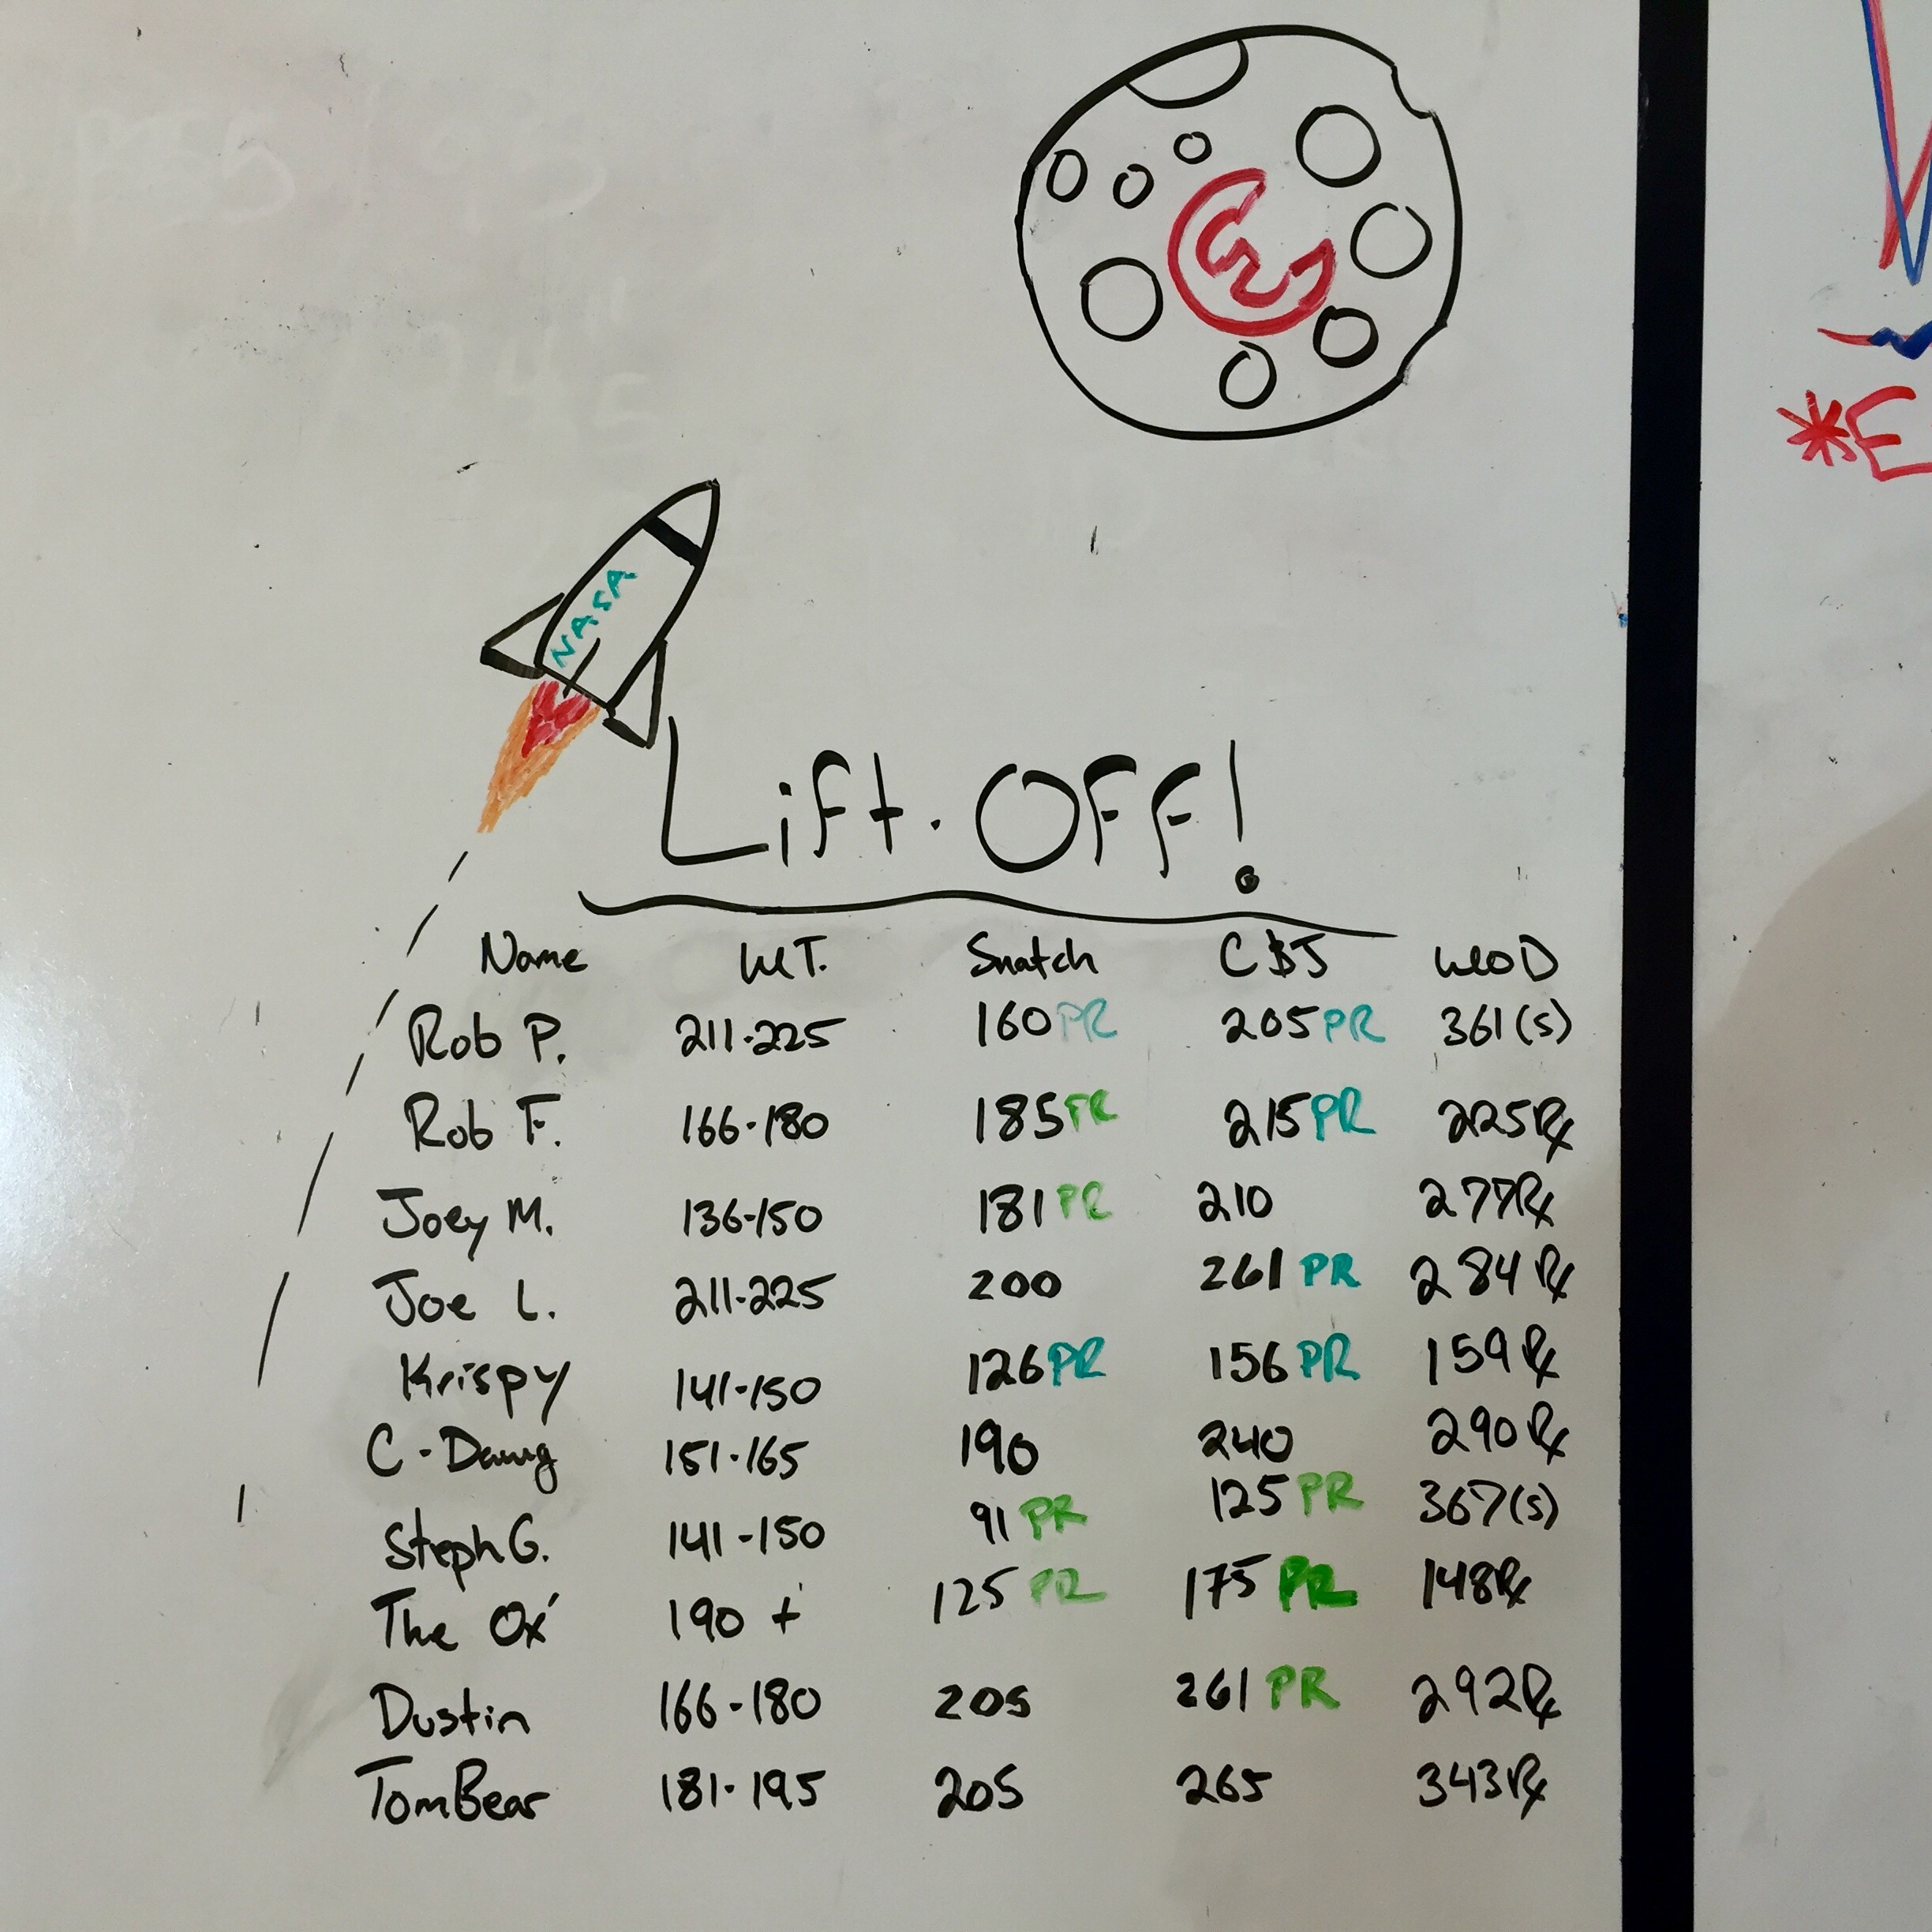 NASA
Lift-Off!
Name WT. Snatch C&J WOD
Rob P. 211-225 160 PR 205 PR 361(s)
Rob F. 166-180 185 PR 215 PR 225 Rx
Joey M. 136-150 181 PR 210 277 Rx
Joe L. 211-225 200 261 PR 284 Rx
Krispy 141-150 126 PR 156 PR 159 Rx
C-Dawg 151-165 190 240 290 Rx
Steph G. 141-150 91 PR 125 PR 367(s)
The Ox 190 + 125 PR 175 PR 148 Rx
Dustin 166-180 205 261 PR 292 Rx
TomBear 181-195 205 265 343 Rx
*E